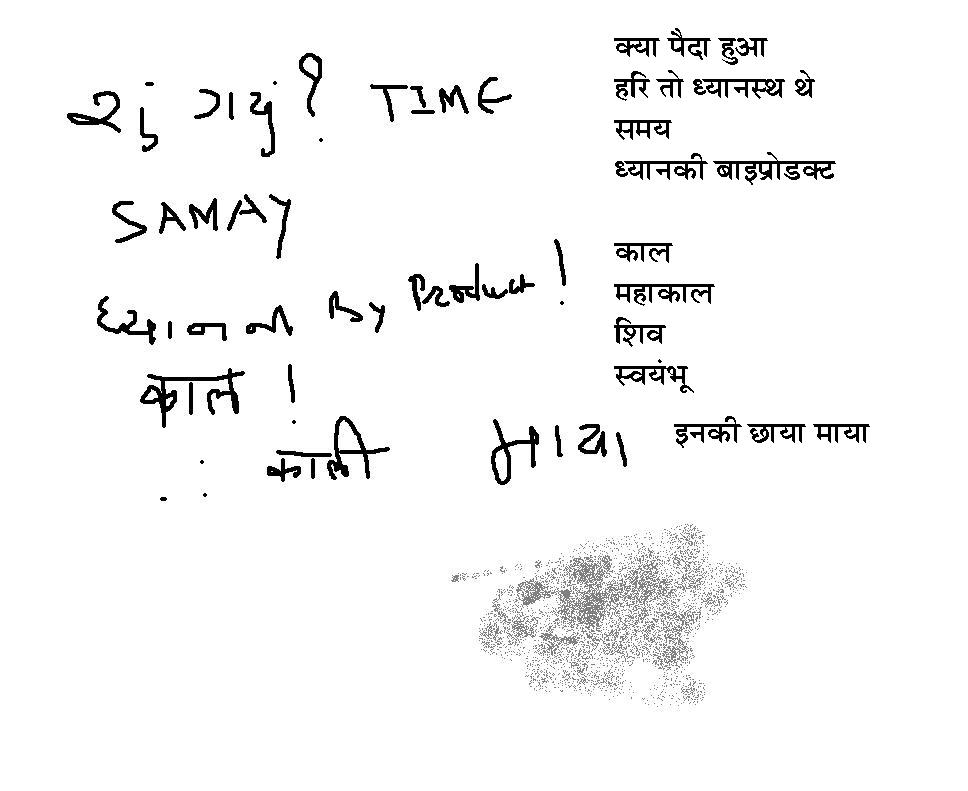 શું ગયું? TIME
SAMAY
ધ્યાનની By Product !
काल !
काली માયા
क्या पैदा हुआ
हरि तो ध्यानस्थ थे
समय
ध्यानकी बाइप्रोडक्ट
काल
महाकाल
शिव
स्वयंभू
इनकी छाया माया